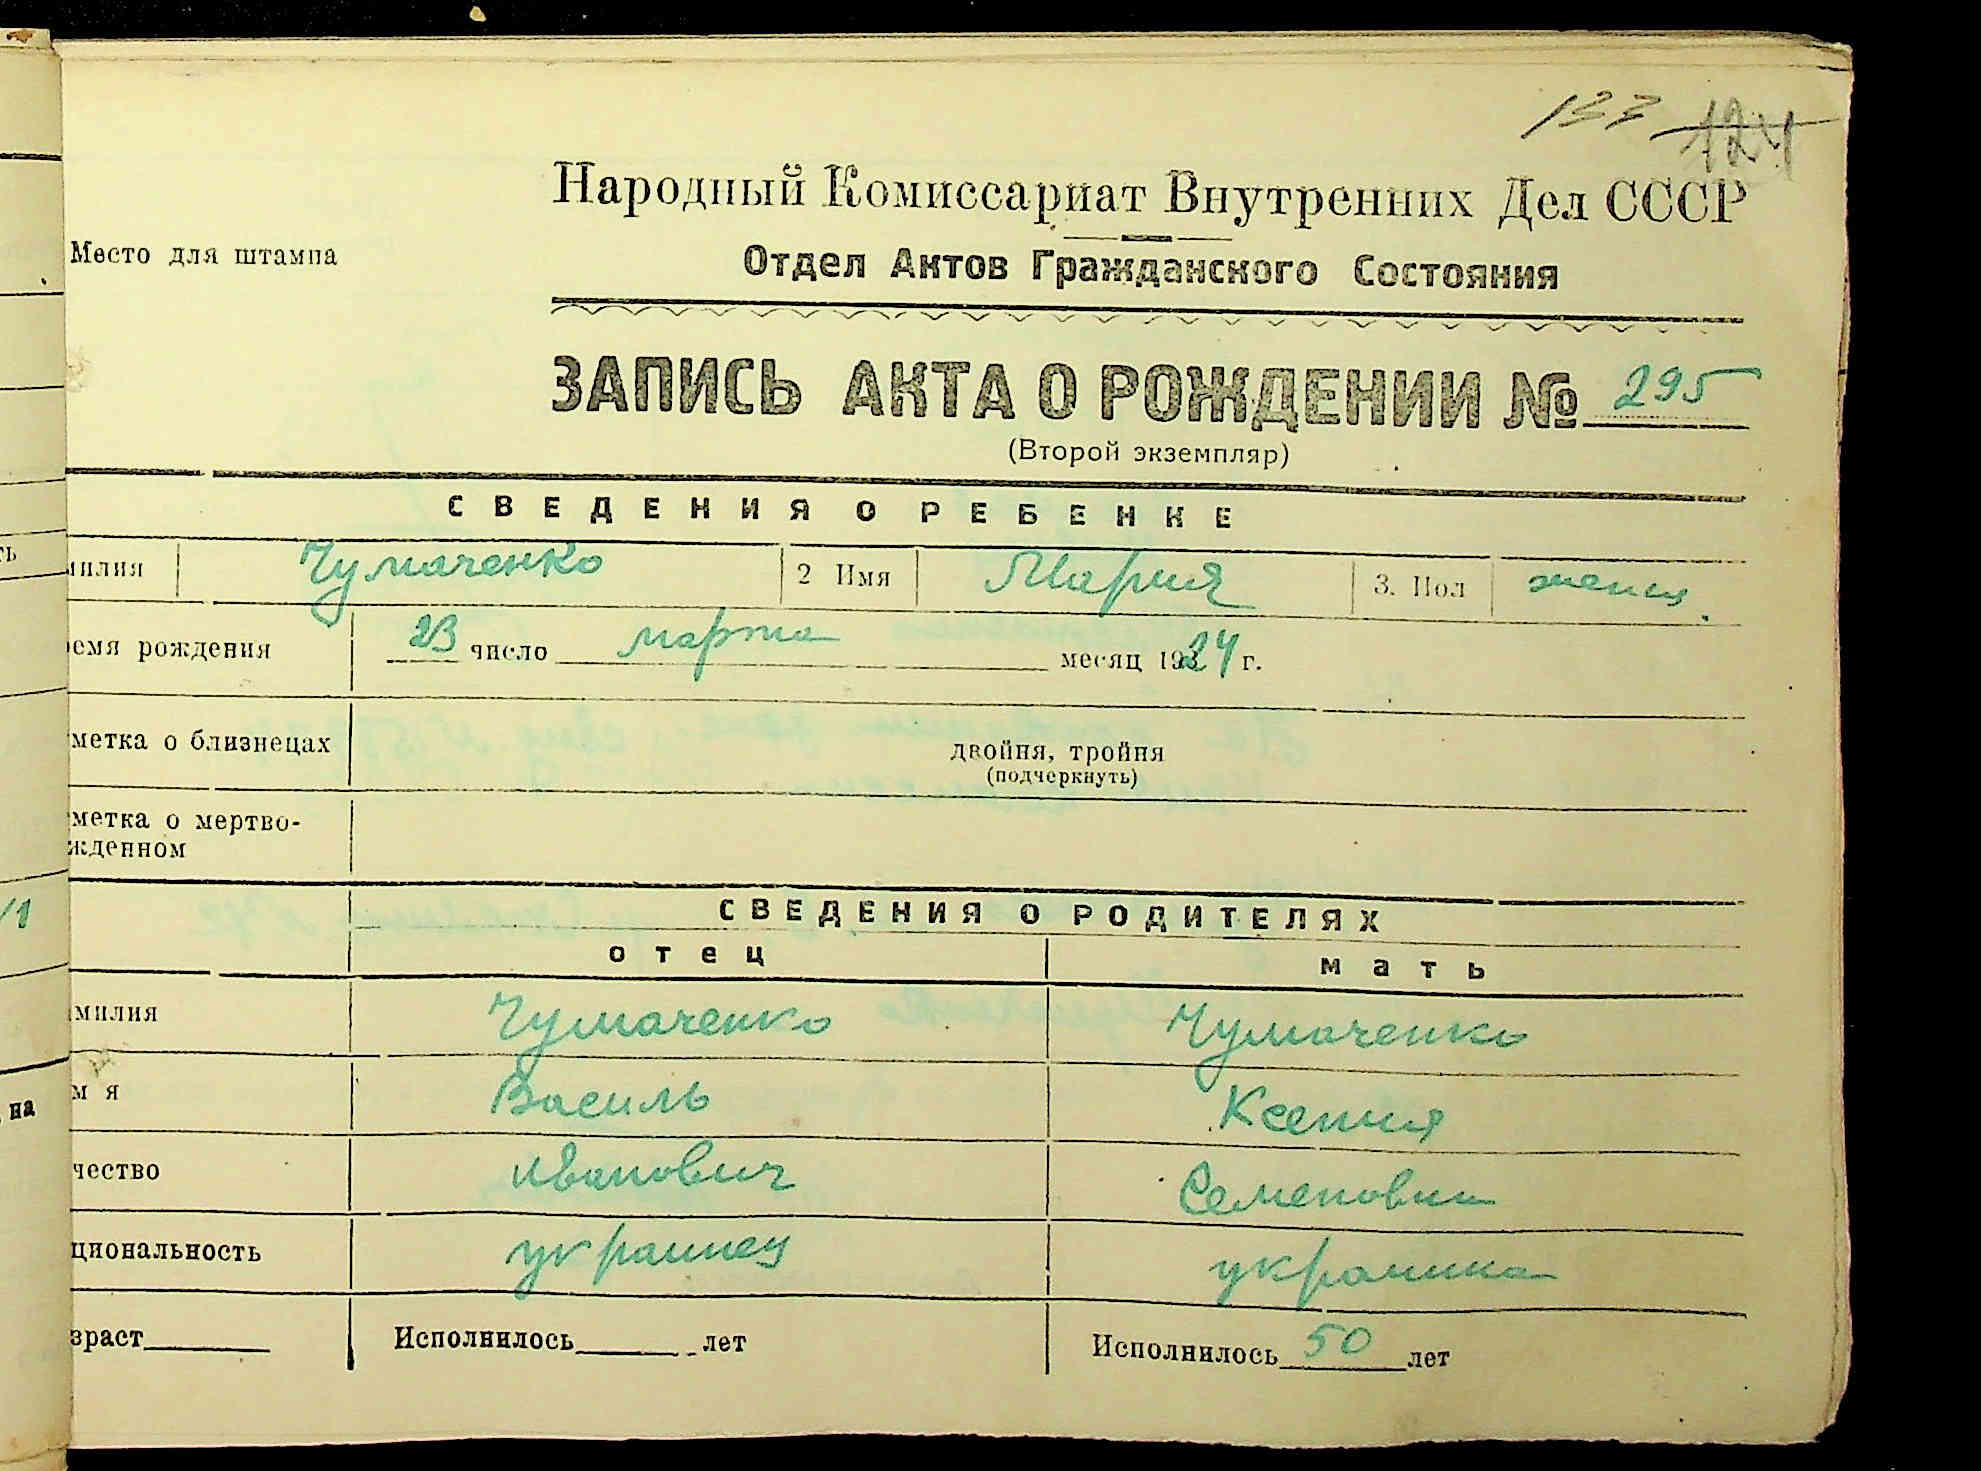 133 124
Народный Комиссариат Внутренних Дел СССР
Место для штампа
Отдел Актов Гражданского Состояния
ЗАПИСЬ АКТА О РОЖДЕНИИ № 295
(Второй экземпляр)
СВЕДЕНИЯ О РЕБЕНКЕ
милия Чумаченко 2 Имя Мария 3. Пол женщ.
емя рождения 23 число марта месяц 1924 г.
метка о близнецах двойня, тройня
(подчеркнуть)
метка о мертво-
жденном
СВЕДЕНИЯ О РОДИТЕЛЯХ
отец мать
милия Чумаченко Чумаченко
м я Василь Ксения
чество Иванович Семеновна
циональность украинец украинка
зраст Исполнилось лет Исполнилось 50 лет
на